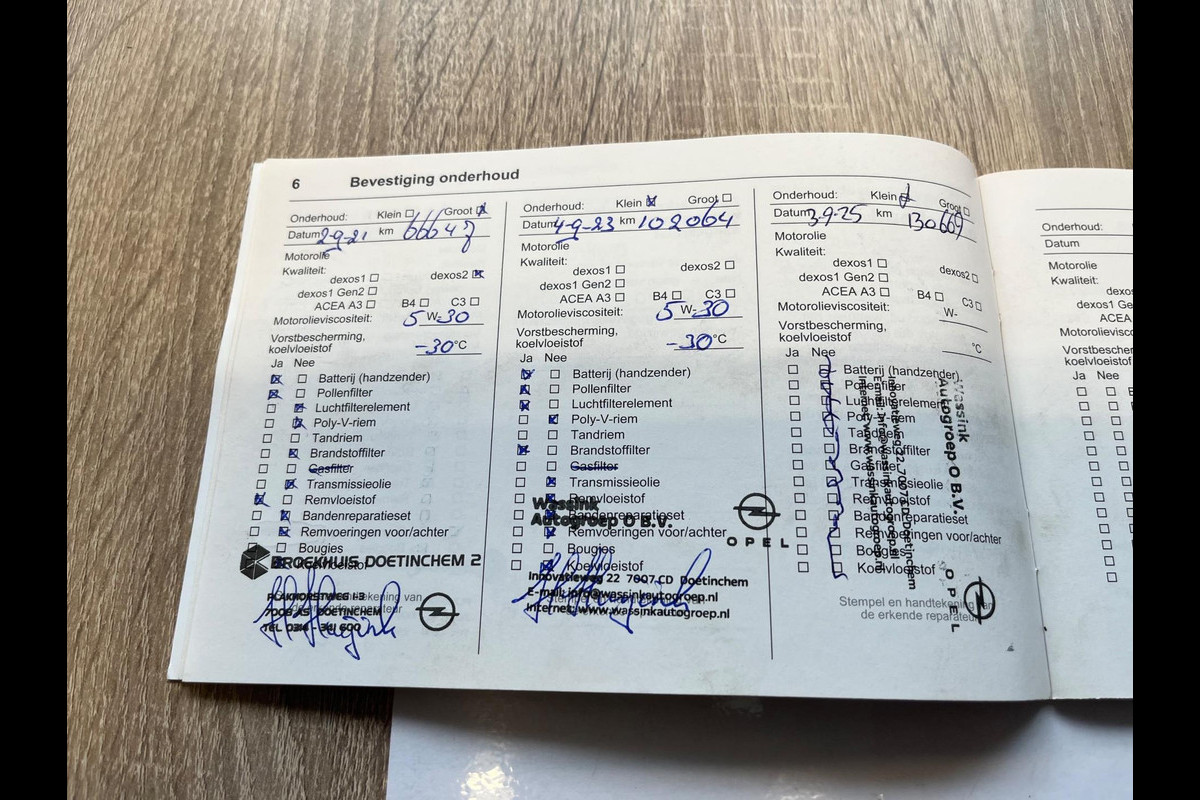 6 Bevestiging onderhoud
Onderhoud: Klein Groot
Datum 2-9-21 km 66647
Motorolie
Kwaliteit:
dexos1 dexos2
dexos1 Gen2
ACEA A3 B4 C3
Motorolieviscositeit: 5 W-30
Vorstbescherming,
koelvloeistof -30 °C
Ja Nee
Batterij (handzender)
Pollenfilter
Luchtfilterelement
Poly-V-riem
Tandriem
Brandstoffilter
Gasfilter
Transmissieolie
Remvloeistof
Bandenreparatieset
Remvoeringen voor/achter
Bougies
Koelvloeistof
BROEKHUIS DOETINCHEM 2
PLAKHORSTWEG 1-3
7005 AS DOETINCHEM
TEL 0314 - 341 600
Onderhoud: Klein Groot
Datum 4-9-23 km 102064
Motorolie
Kwaliteit:
dexos1 dexos2
dexos1 Gen2
ACEA A3 B4 C3
Motorolieviscositeit: 5 W-30
Vorstbescherming,
koelvloeistof -30 °C
Ja Nee
Batterij (handzender)
Pollenfilter
Luchtfilterelement
Poly-V-riem
Tandriem
Brandstoffilter
Gasfilter
Transmissieolie
Remvloeistof
Bandenreparatieset
Remvoeringen voor/achter
Bougies
Koelvloeistof
Wassink
Autogroep O B.V.
OPEL
Innovatieweg 22 7007 CD Doetinchem
E-mail: info@wassinkautogroep.nl
Internet: www.wassinkautogroep.nl
Onderhoud: Klein Groot
Datum 3-9-25 km 130669
Motorolie
Kwaliteit:
dexos1 dexos2
dexos1 Gen2
ACEA A3 B4 C3
Motorolieviscositeit: W-
Vorstbescherming,
koelvloeistof °C
Ja Nee
Batterij (handzender)
Pollenfilter
Luchtfilterelement
Poly-V-riem
Tandriem
Brandstoffilter
Gasfilter
Transmissieolie
Remvloeistof
Bandenreparatieset
Remvoeringen voor/achter
Bougies
Koelvloeistof
Wassink
Autogroep O B.V.
Innovatieweg 22 7007 CD Doetinchem
E-mail: info@wassinkautogroep.nl
Internet: www.wassinkautogroep.nl
OPEL
Stempel en handtekening van
de erkende reparateur
Onderhoud:
Datum
Motorolie
Kwaliteit:
Vorstbescherming,
koelvloeistof
Ja Nee